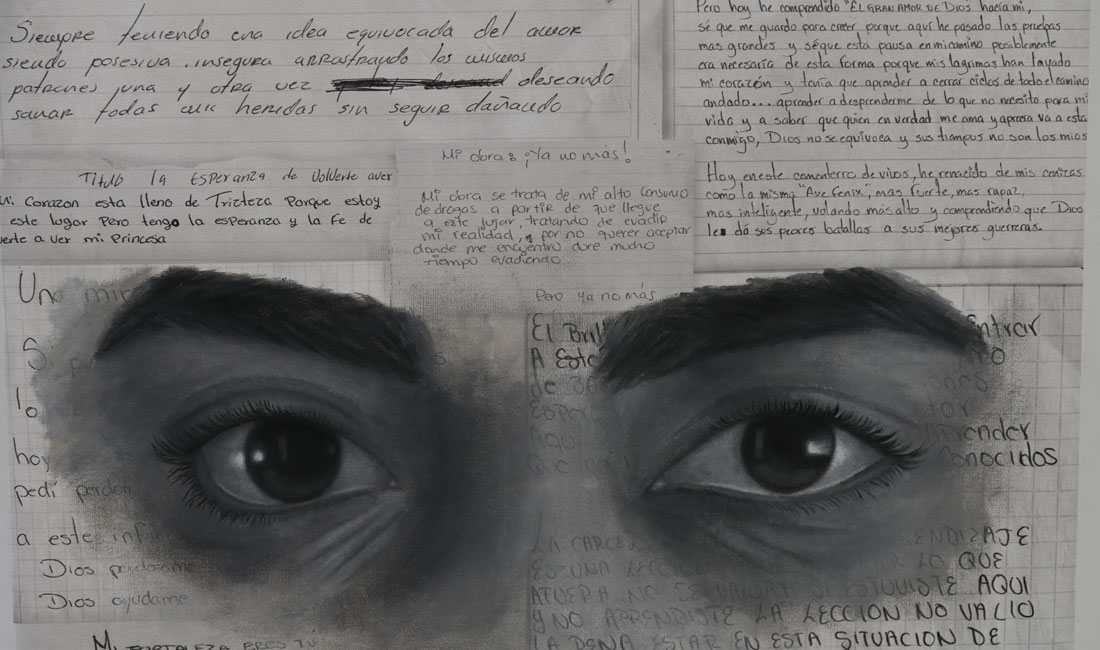 Siempre teniendo una idea equivocada del amor
siendo posesiva. insegura arrastrando los mismos
patrones una y otra vez deseando
sanar todas mis heridas sin seguir dañando
Pero hoy he comprendido "EL GRAN AMOR DE DIOS hacia mi,
sé que me guardo para crecer porque aquí he pasado las pruebas
mas grandes y séque esta pausa en micamino posiblemente
era necesaria de esta forma porque mis lagrimas han lavado
mi corazón y tenía que aprender a cerrar ciclos de todo el camino
andado... aprender a desprenderme de lo que no necesito para mi
vida y a saber que quien en verdad me ama y aprecia va a esta
conmigo, Dios no se equivoca y sus tiempos no son los mios
Hoy en este cementerio de vivos, he renacido de mis cenizas
como la misma "Ave Fenix", mas fuerte, mas rapaz,
mas inteligente, volando más alto y comprendiendo que Dios
les dá sus peores batallas a sus mejores guerreras.
Titulo la ESPERANZA de Volverte aver
Mi Corazon esta lleno de Tristeza Porque estoy
este lugar Pero tengo la esperanza y la Fe de
verte a ver mi Princesa
Mi obra: ¡Ya no más!
Mi obra se trata de mi alto consumo
de drogas a partir de que llegue
a este lugar, tratando de evadir
mi realidad, y por no querer aceptar
donde me encuentro dure mucho
tiempo evadiendo.
Pero ya no más
Una mir
S
lo
hoy
pedí perdon
a este inf
Dios perdoname
Dios ayudame
El Brill
A Esta
de
Espe
Aqu
Entrar
iones
star
Aprender
onocidos
LA CARCE ENDIZAJE
ES UNA LECCION LO QUE
AFUERA NO SE ESTUVISTE AQUI
Y NO APRENDISTE LA LECCION NO VALIO
LA PENA ESTAR EN ESTA SITUACION DE
Mi FORTALEZA ERES TU